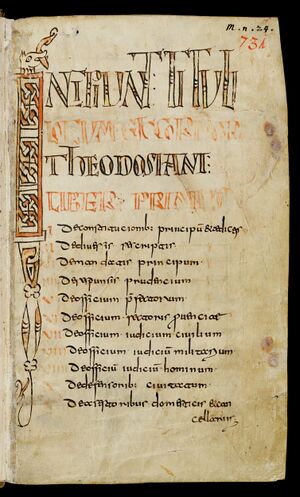 m. n. 29.
731
INCIPIUNT TITULI
LEGUM EX CORPORE
THEODOSIANI:
LIBER PRIMUS
De constitucionib: principū et edictes
De diuersis rescriptis
De mandatis principum
De responsis prudencium
De officium prefectorum
De officium rectoris
De officium iudicium ciuilium
De officium iudiciū militarium
De officiū iudicū hominum
De defensorib: ciuitatum
De axessoribus domesticis et can
cellarius